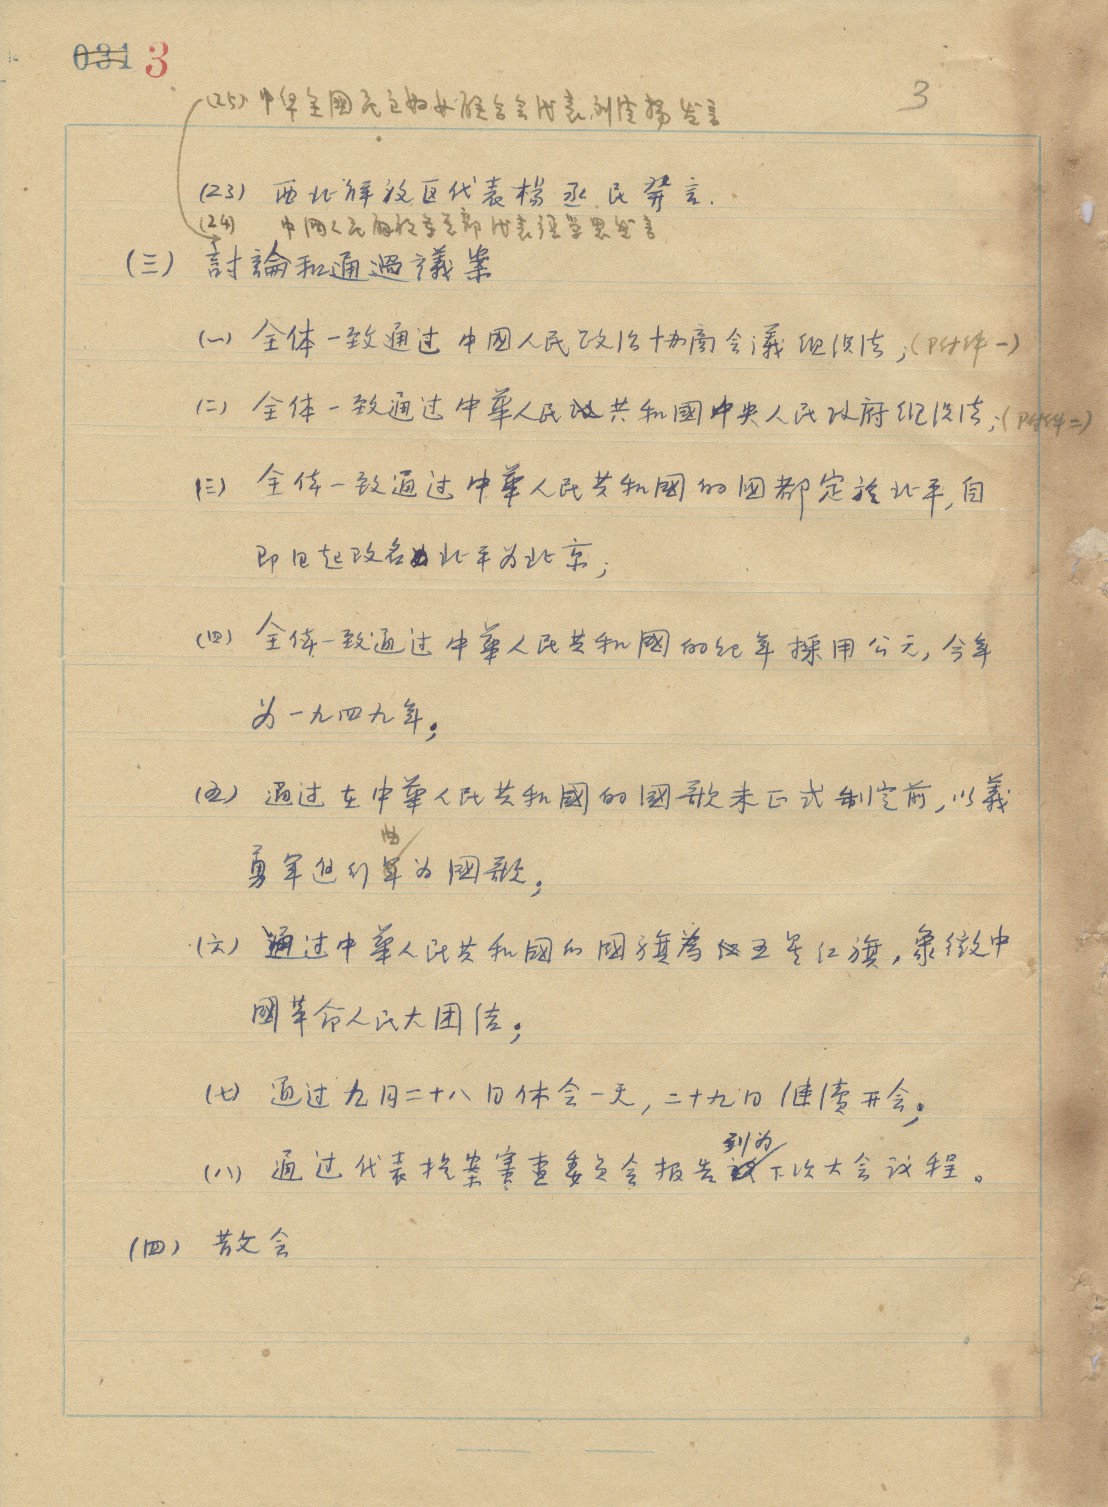 031 3
3
(25) 中华全國民主妇女联合会代表刘清揚发言
(23) 西北解放区代表楊丞民發言.
(24) 中國人民解放军总部代表張学思发言
(三) 討論和通過議案
(一) 全体一致通过中國人民政治协商会議组织法；(附件一)
(二) 全体一致通过中華人民共和國中央人民政府组织法；(附件二)
(三) 全体一致通过中華人民共和國的國都定於北平,自
即日起改名北平为北京；
(四) 全体一致通过中華人民共和國的纪年採用公元,今年
为一九四九年；
(五) 通过在中華人民共和國的國歌未正式制定前,以義
勇军进行曲为國歌；
(六) 通过中華人民共和國的國旗為五星红旗,象徵中
國革命人民大团结；
(七) 通过九月二十八日休会一天,二十九日继續开会；
(八) 通过代表提案審查委员会报告列为下次大会议程。
(四) 散会